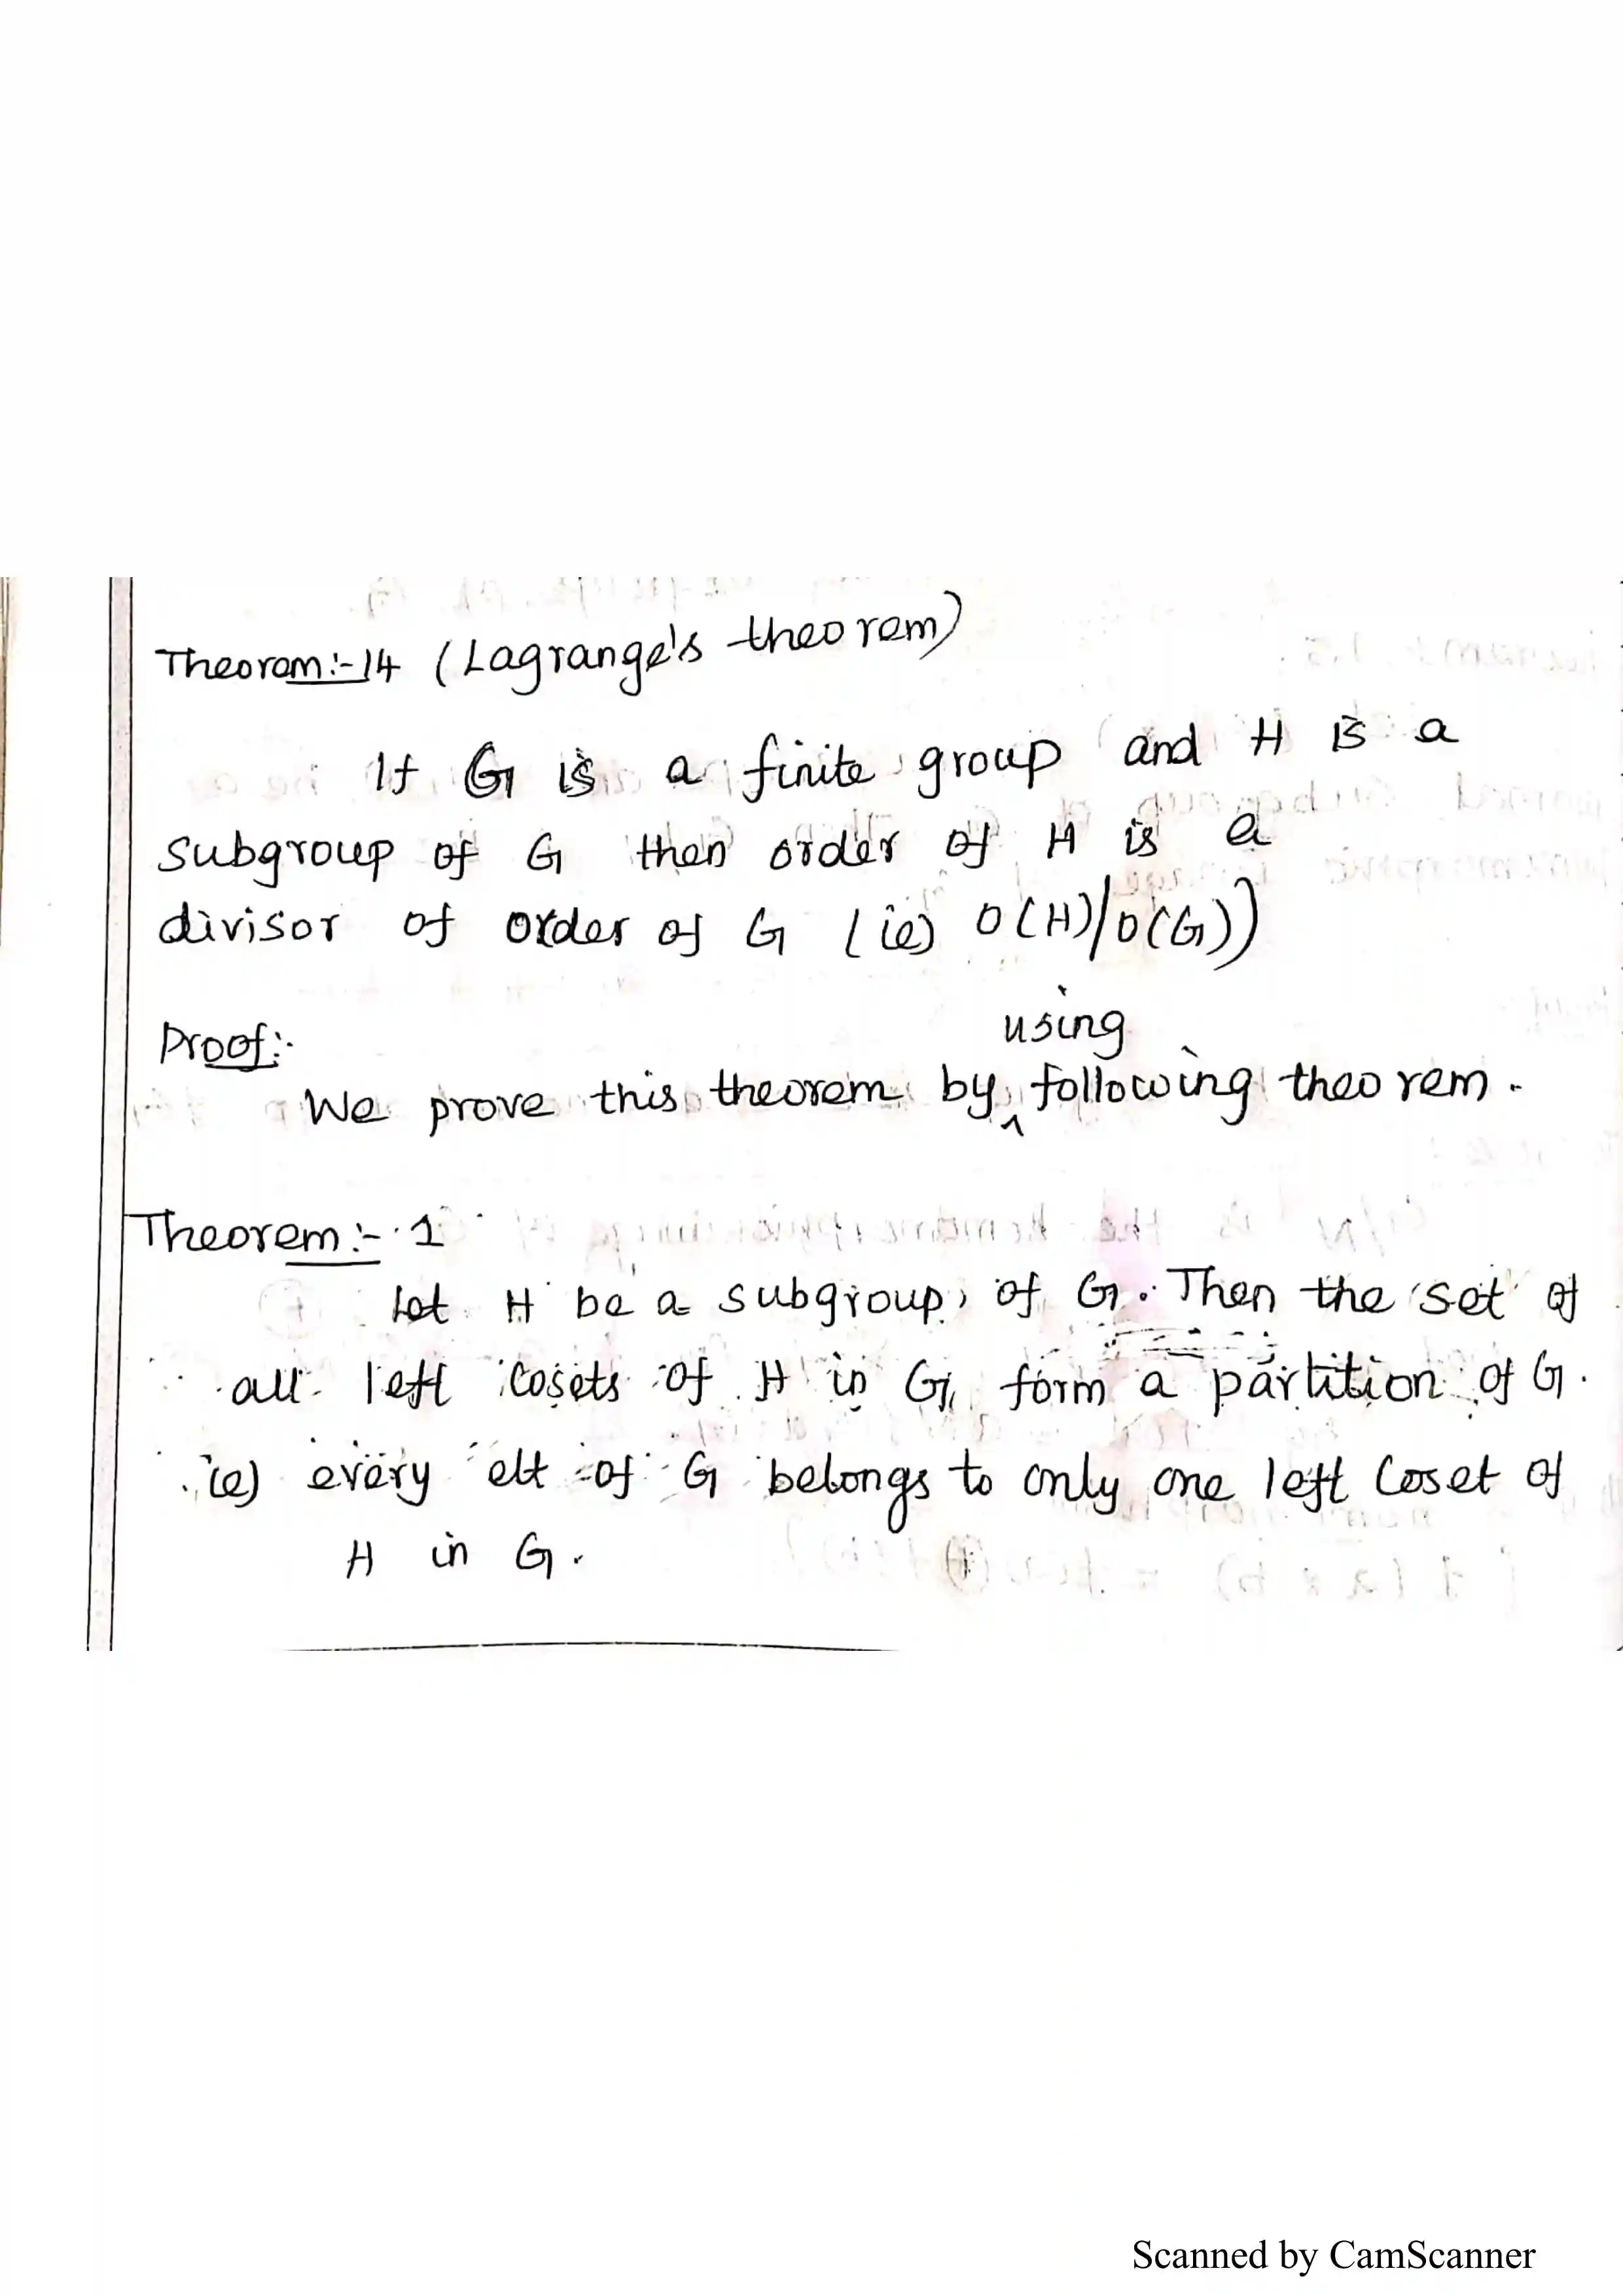 Theorem:-14 (Lagrange's theorem)
If G is a finite group and H is a
subgroup of G then order of H is a
divisor of order of G (ie) O(H)/O(G))
Proof:-
using
We prove this theorem by ^ following theorem.
Theorem:- 1
Let H be a subgroup of G. Then the set of
all left cosets of H in G form a partition of G.
ie) every elt of G belongs to only one left coset of
H in G.
Scanned by CamScanner